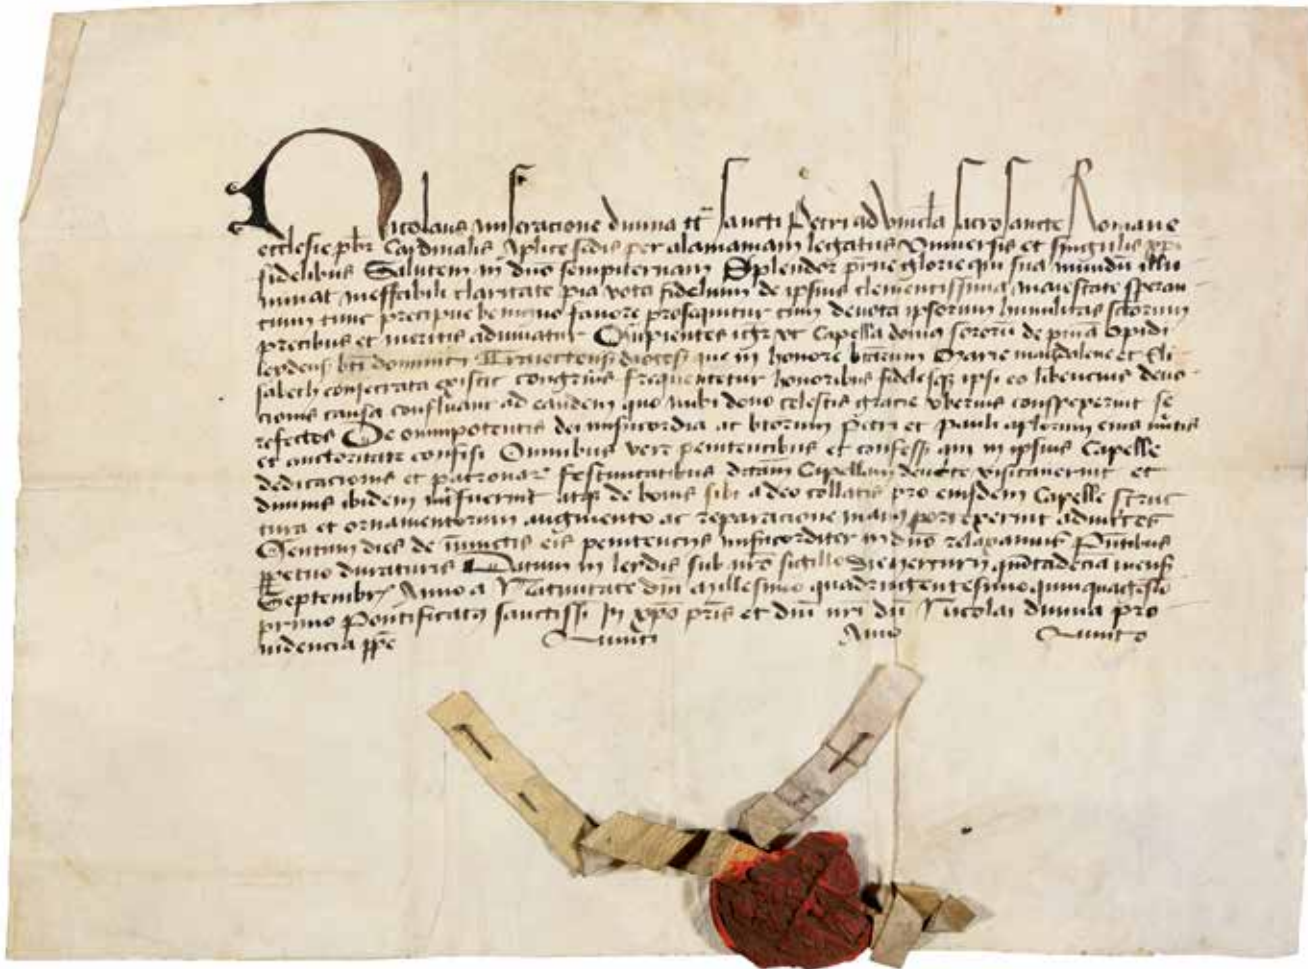 Nicolaus miseracione divina tt Sancti Petri ad Vincla Sacrosancte Romane
ecclesie pbr Cardinalis Aplice sedis per alamaniam legatus Universis et singulis xpi
fidelibus Salutem in dno sempiternam Splendor prne glorie qui sua mundu illu
minat ineffabili claritate pia vota fidelium de ipsius clementissima maiestate speran
cium tunc precipue benigno favore prosequitur cum devota ipsorum humilitas sctorum
precibus et meritis adiuvatur Cupientes igr ut Capella domus sororu de Opidi
leydens Traiectens dioces que in honore btarum Marie magdalene et Eli
sabeth consecrata existit congruis frequentetur honoribus fidelesq ipsi eo libencius devo
cionis causa confluant ad eandem quo inibi dono celestis gracie uberius conspexerint se
refectos De omnipotentis dei misericordia ac btorum Petri et Pauli aplorum eius
et auctoritate confisi Omnibus vere penitentibus et confessis qui in ipsius Capelle
dedicacionis et patronar festivitatibus dictam Capellam devote visitaverint et
divinis ibidem interfuerint atq de bonis sibi a deo collatis pro eiusdem Capelle struc
tura et ornamentorum augmento ac reparacione manus porrexerint adiutrices
Centum dies de iniunctis eis penitenciis misericorditer in dno relaxamus Pntibus
ppetuo duraturis Datum in leydis sub nro sigillo die mensis
Septembr Anno a Nativitate dni Millesimo quadringentesimo quinquagesio
primo Pontificatus sanctissi In xpo pris et dni nri dni Nicolai divina pro
videncia ppe Quinti Anno Quinto